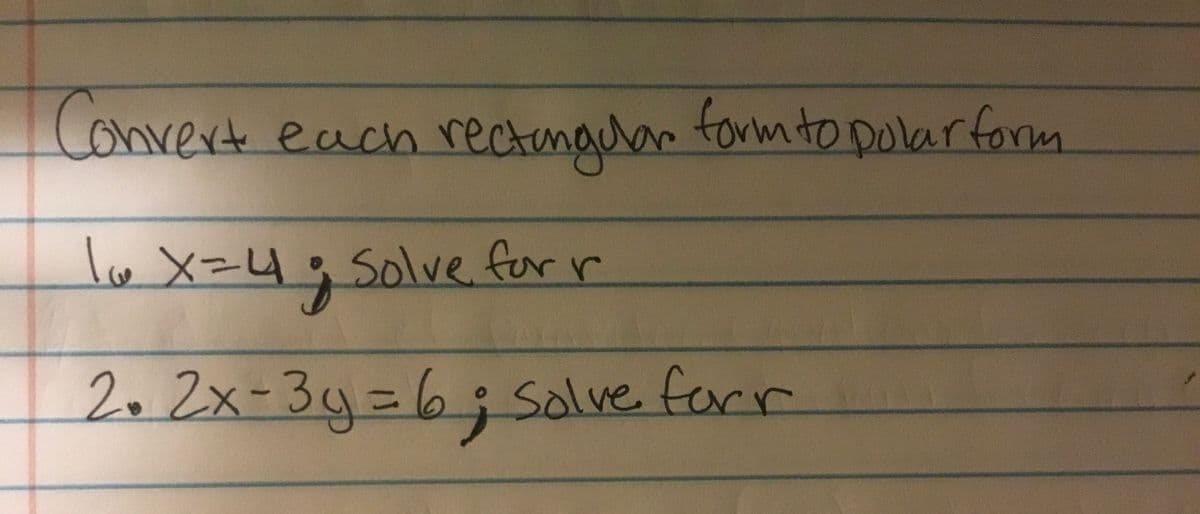 Convert each rectangular form to polar form
1. x=4; solve for r
2. 2x-3y=6; solve for r